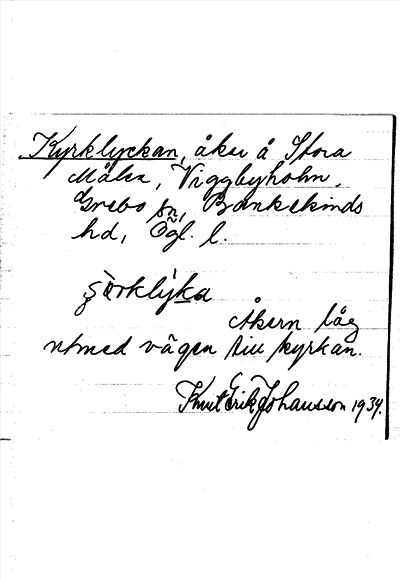 Kyrklyckan, åker å Stora
Målen, Viggbyholm,
Grebo sn, Bankekinds
hd, Ögl. l.
Åkern låg
utmed vägen till kyrkan.
Knut Erik Johansson 1934.